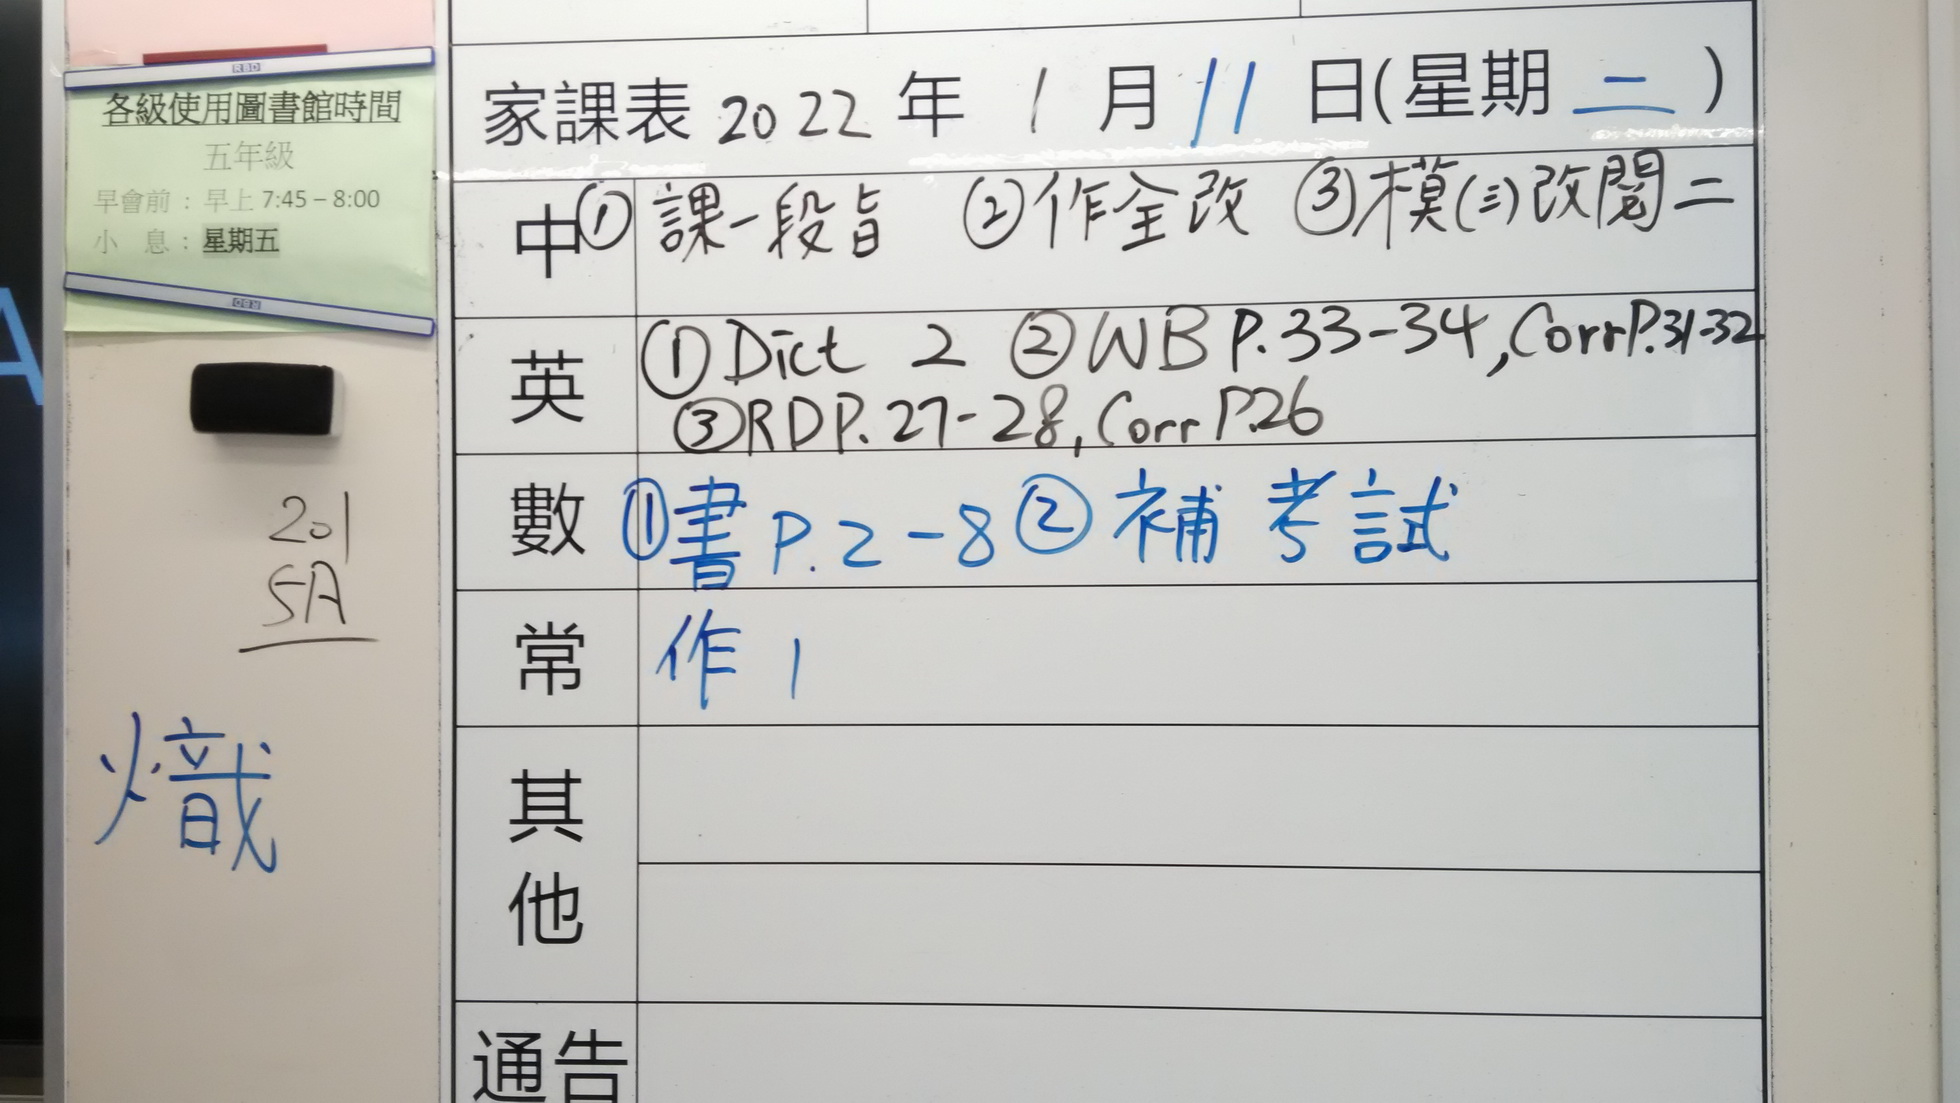 RBD
各級使用圖書館時間
五年級
早會前：早上 7:45 – 8:00
小 息：星期五
RBD
201
5A
熾
家課表 2022 年 1 月 11 日(星期 二 )
中 ① 課一段旨 ② 作全改 ③ 模(三)改閱二
英 ① Dict 2 ② WB P.33-34, Corr P.31-32
③ RD P.27-28, Corr P.26
數 ① 書 P.2-8 ② 補考試
常 作1
其他
通告